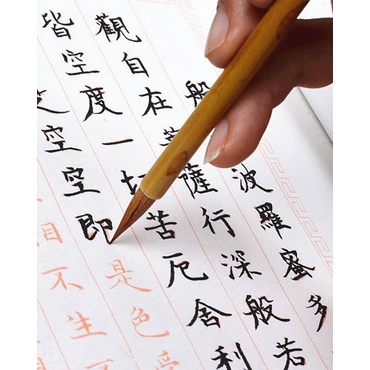 般波羅蜜多
觀自在菩薩行深般若
皆空度一切苦厄舍利
空空即是色受
相不生不